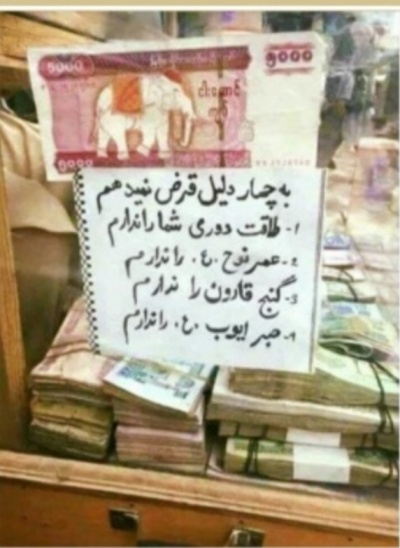 5000
၅၀၀၀
ငါးထောင်
ကျပ်
၅၀၀၀
به چهار دلیل قرض نمیدهم
۱- طاقت دوری شما را ندارم
۲- عمر نوح .ع. را ندارم
۳- گنج قارون را ندارم
۴- صبر ایوب .ع. را ندارم